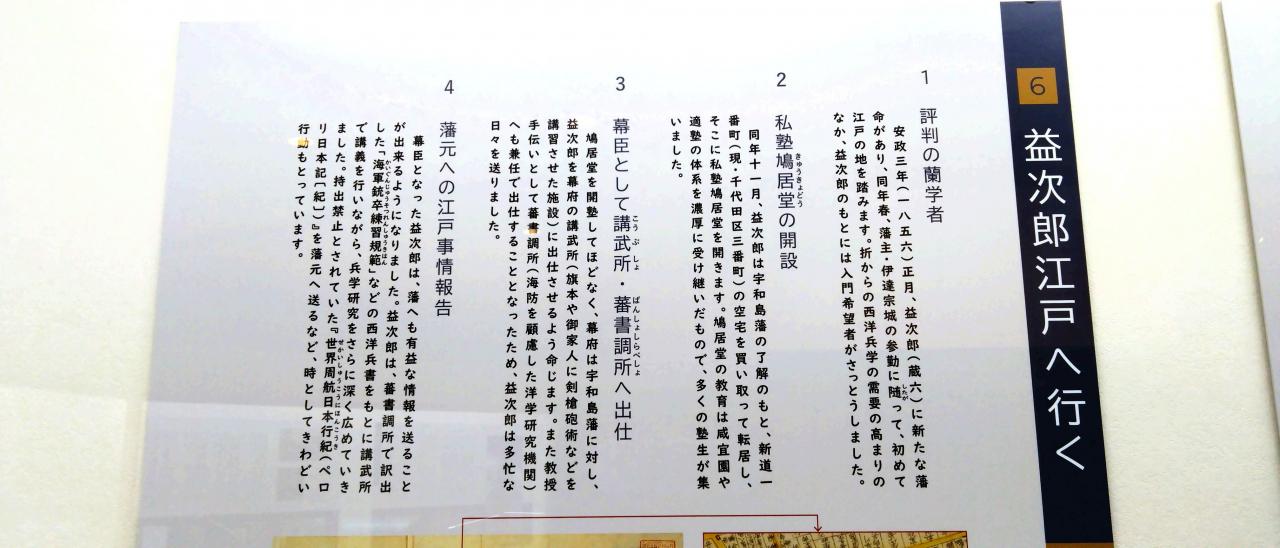 6 益次郎江戸へ行く
1 評判の蘭学者
安政三年(一八五六)正月、益次郎(蔵六)に新たな藩
命があり、同年春、藩主・伊達宗城の参勤に随って、初めて
江戸の地を踏みます。折からの西洋兵学の需要の高まりの
なか、益次郎のもとには入門希望者がさっとうしました。
2 私塾鳩居堂の開設
同年十一月、益次郎は宇和島藩の了解のもと、新道一
番町(現・千代田区三番町)の空宅を買い取って転居し、
そこに私塾鳩居堂を開きます。鳩居堂の教育は咸宜園や
適塾の体系を濃厚に受け継いだもので、多くの塾生が集
いました。
3 幕臣として講武所・蕃書調所へ出仕
鳩居堂を開塾してほどなく、幕府は宇和島藩に対し、
益次郎を幕府の講武所(旗本や御家人に剣槍砲術などを
講習させた施設)に出仕させるよう命じます。また教授
手伝いとして蕃書調所(海防を顧慮した洋学研究機関)
へも兼任で出仕することとなったため、益次郎は多忙な
日々を送りました。
4 藩元への江戸事情報告
幕臣となった益次郎は、藩へも有益な情報を送ること
が出来るようになりました。益次郎は、蕃書調所で訳出
した「海軍銃卒練習規範」などの西洋兵書をもとに講武所
で講義を行いながら、兵学研究をさらに深く広めていき
ました。持出禁止とされていた『世界周航日本行紀(ペロ
リ日本記〔紀〕)』を藩元へ送るなど、時としてきわどい
行動もとっています。